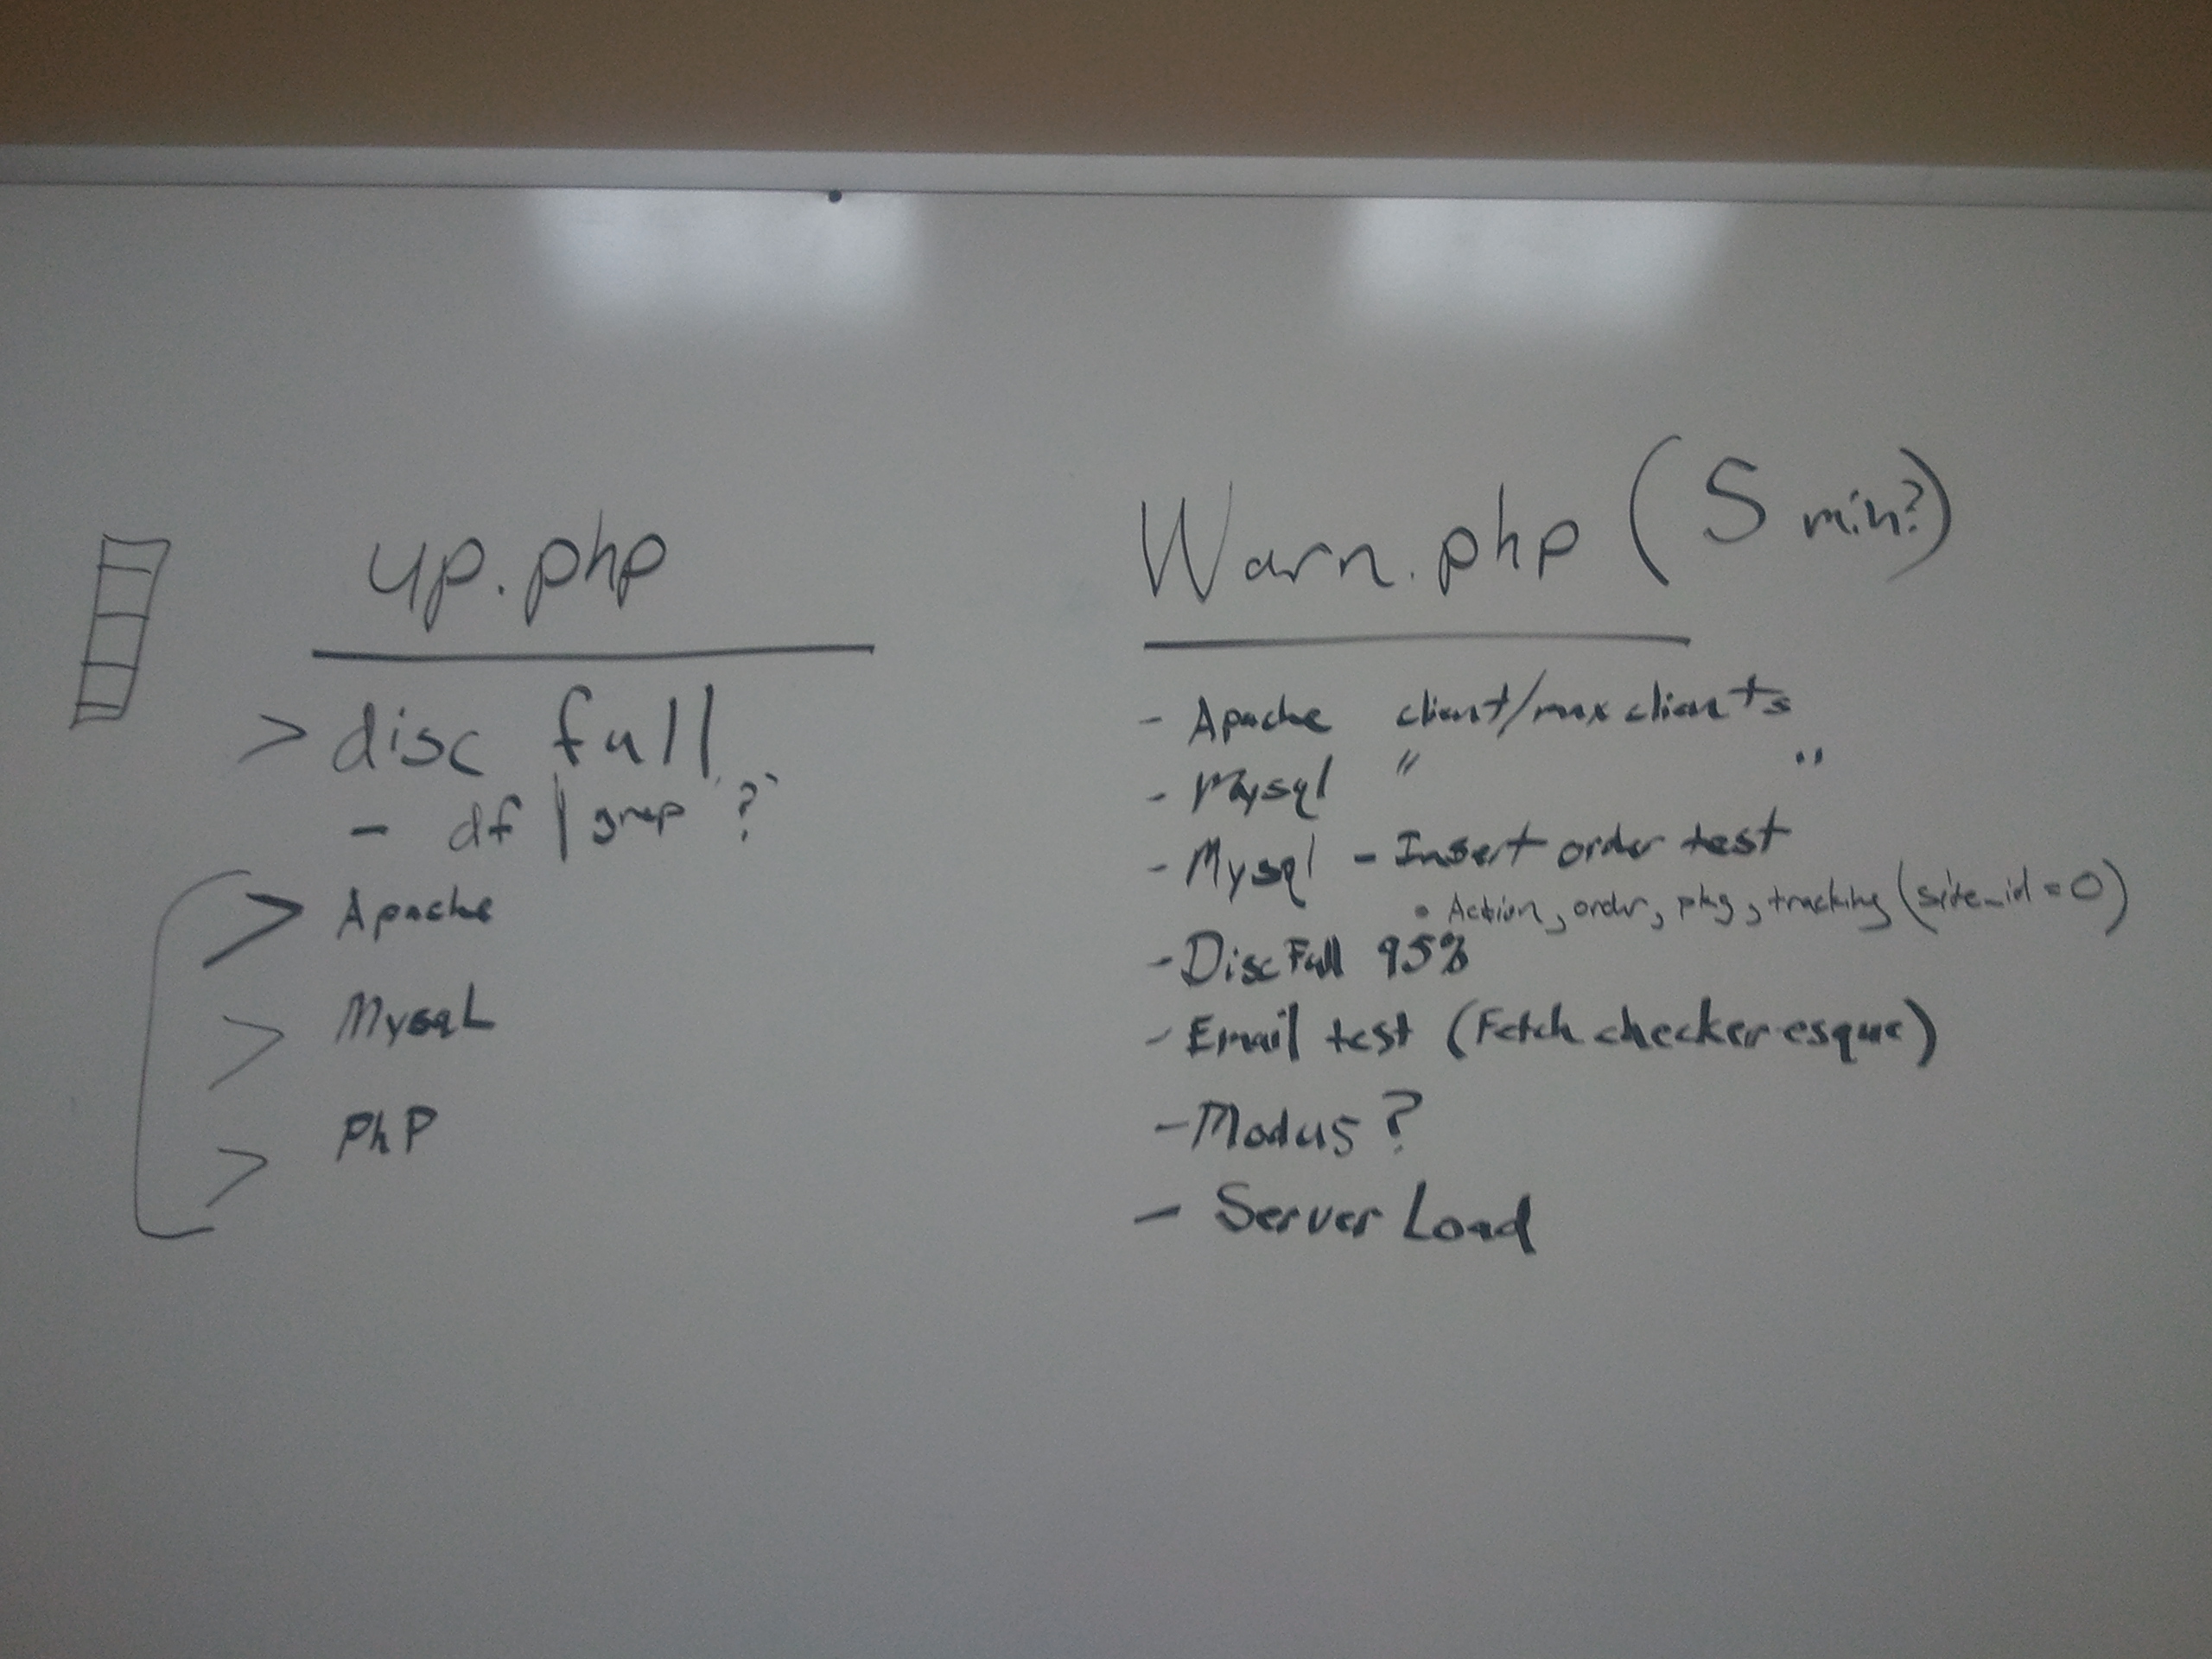 up.php
> disc full
- df | grep "?"
> Apache
> MysqL
> PhP
Warn.php (5 min?)
- Apache client/max clients
- Mysql " "
- Mysql - Insert order test
• Action, order, pkg, tracking (site_id = 0)
- Disc Full 95%
- Email test (Fetch checker-esque)
- Modus?
- Server Load